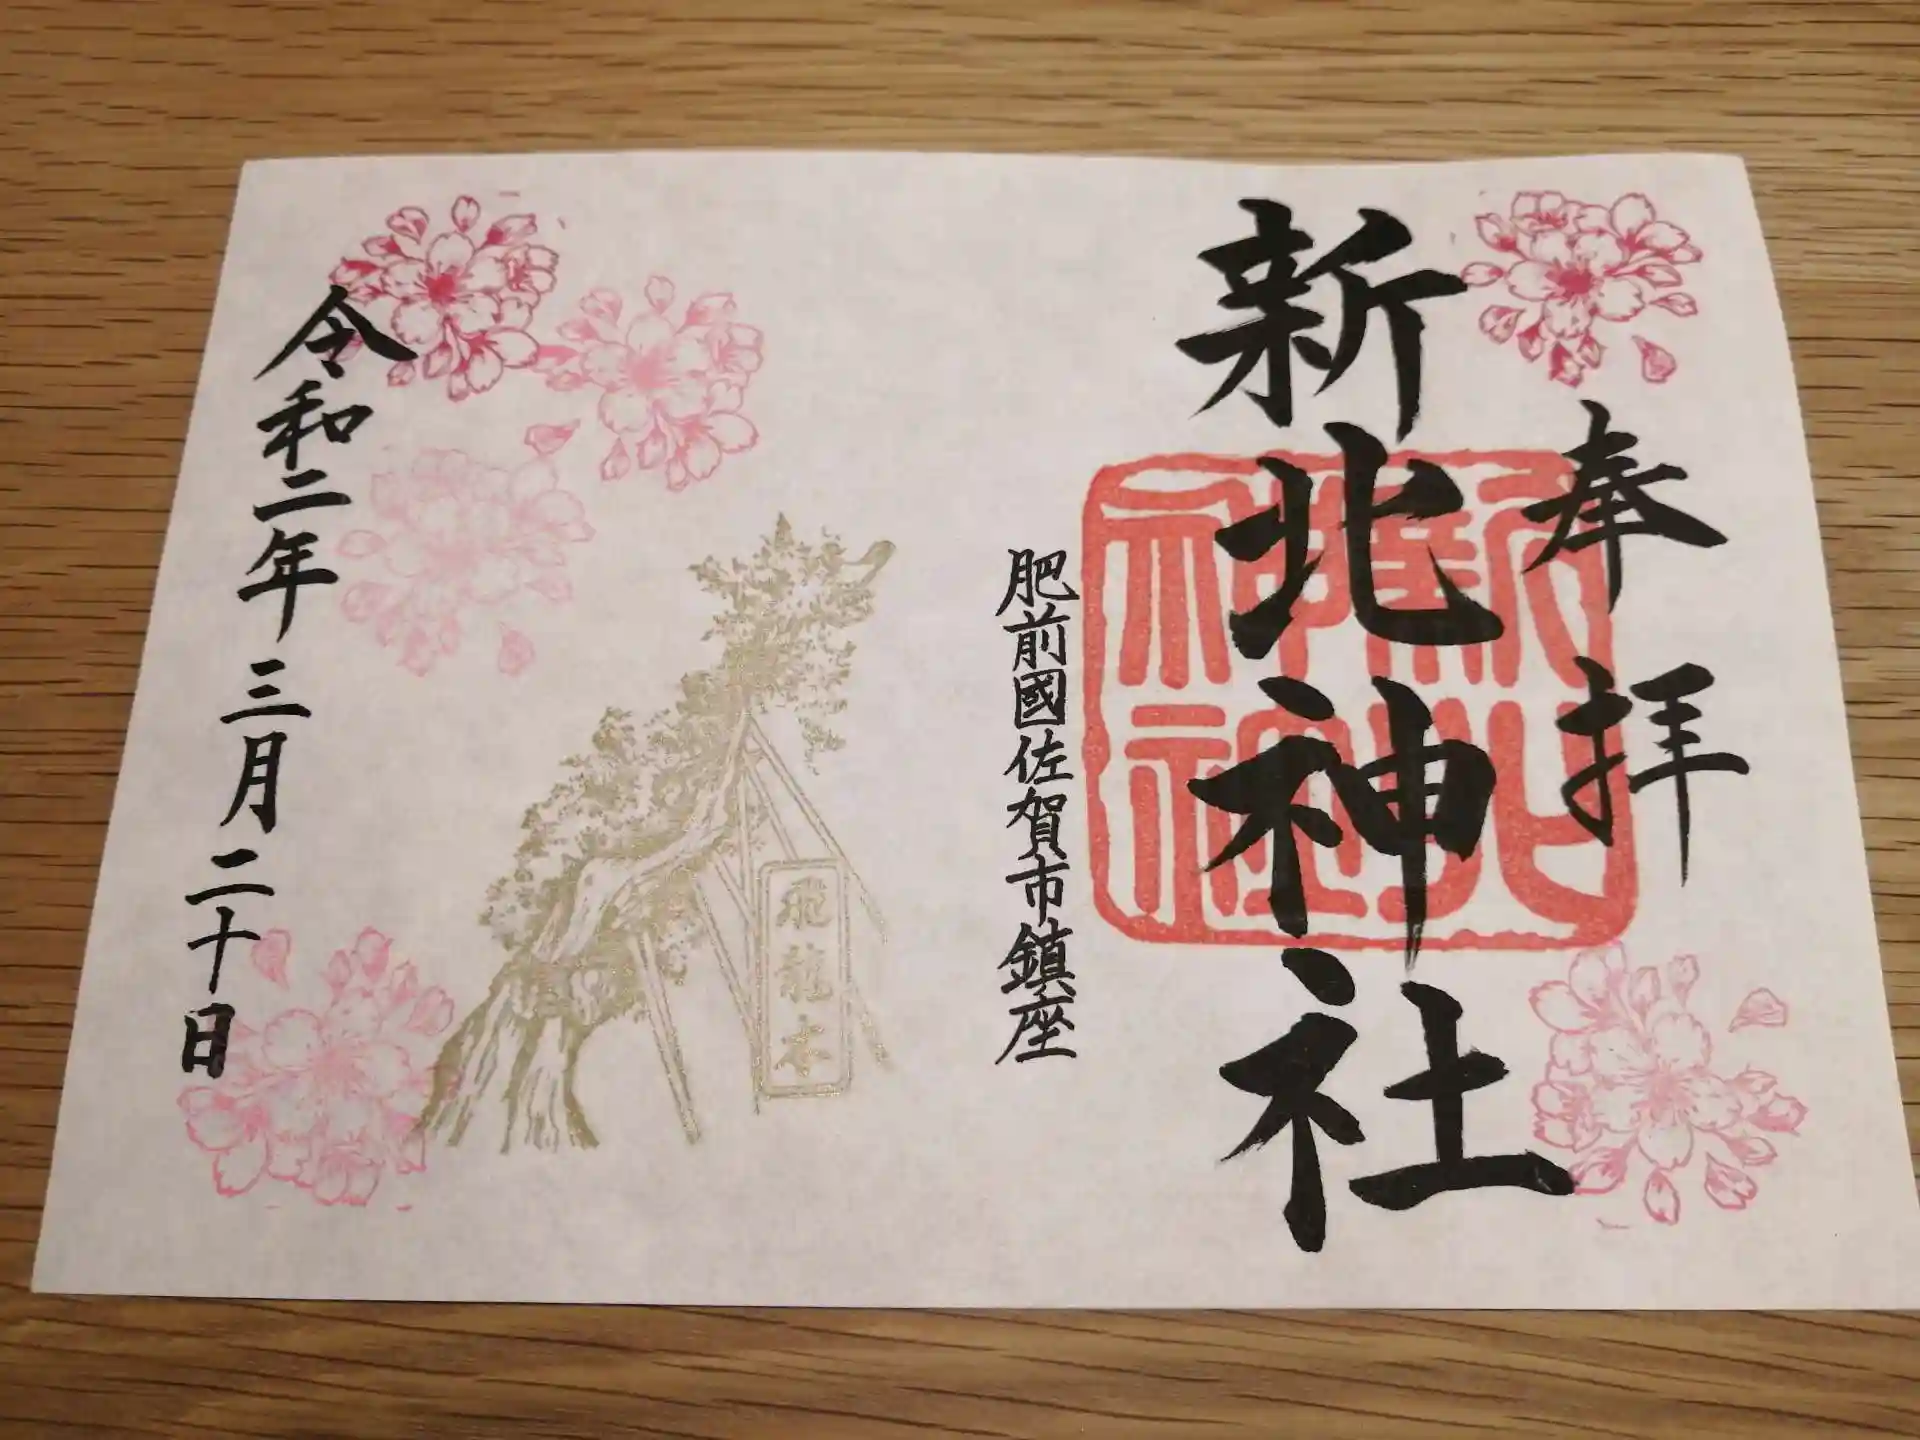 奉拝
新北神社
新北神社
肥前國佐賀市鎮座
飛龍木
令和二年三月二十日